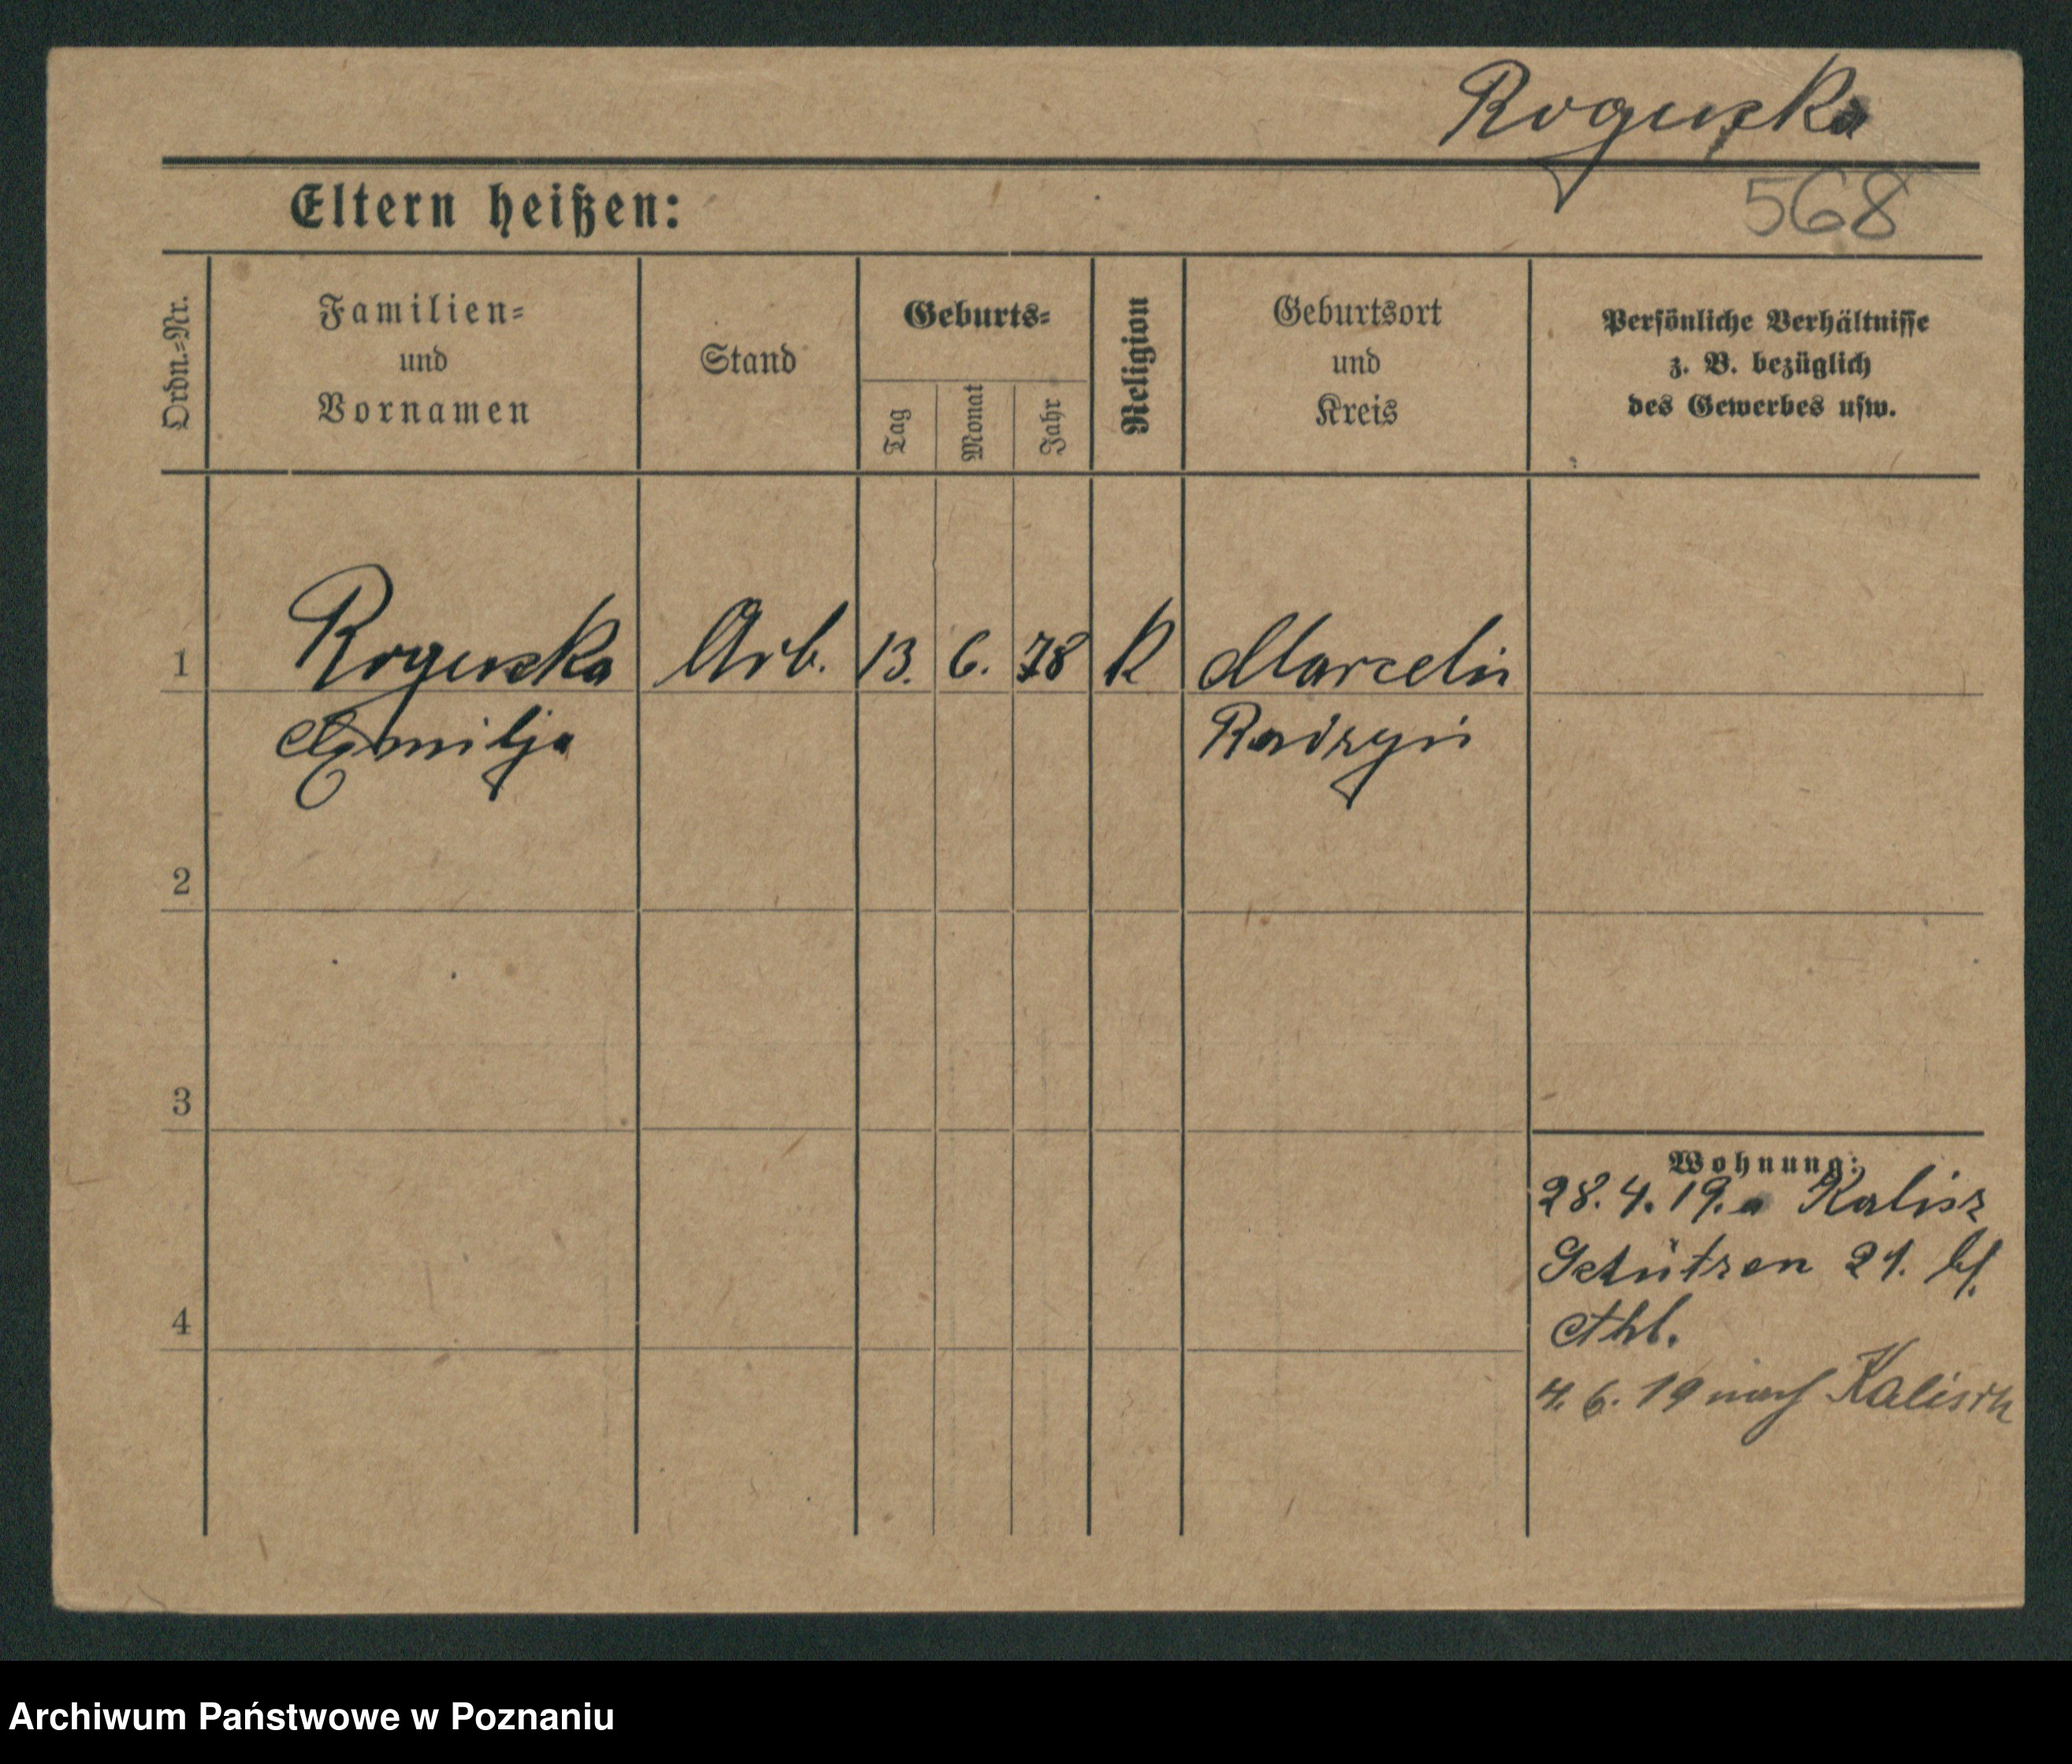 Roguska
Eltern heißen:
568
Ordn.=Nr.
Familien=
und
Vornamen
Stand
Geburts=
Tag
Monat
Jahr
Religion
Geburtsort
und
Kreis
Persönliche Verhältnisse
z. B. bezüglich
des Gewerbes usw.
1
Roguska Arb. 13. 6. 78 K Marcelin
Emilja Radzyń
2
3
4
Wohnung:
28. 4. 19. a Kalisz
Schützen 21. bf.
4. 6. 19 nach Kalisch
Archiwum Państwowe w Poznaniu